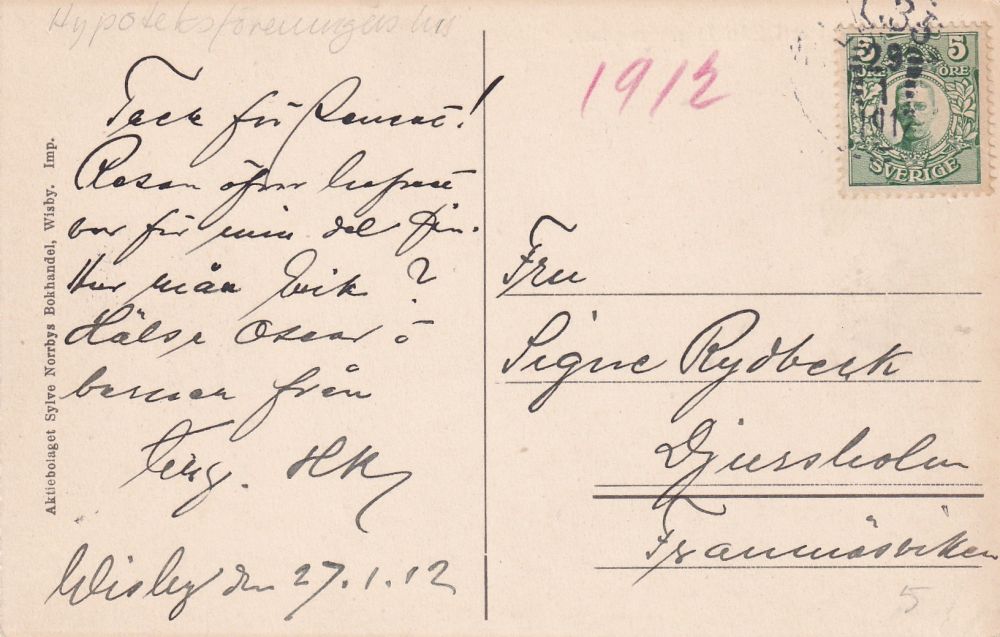 Hypoteksföreningens hus
Tack för senast!
Resan öfver hafvet
var för min del fin.
Hur mår Erik?
Hälsa Oscar o
barnen från
HK
Wisby den 27.1.12
Aktiebolaget Sylve Norrbys Bokhandel, Wisby. Imp.
1912
5 5
ÖRE ÖRE
SVERIGE
29
1
191
Fru
Signe Rydbeck
Djursholm
Framnäsviken
5